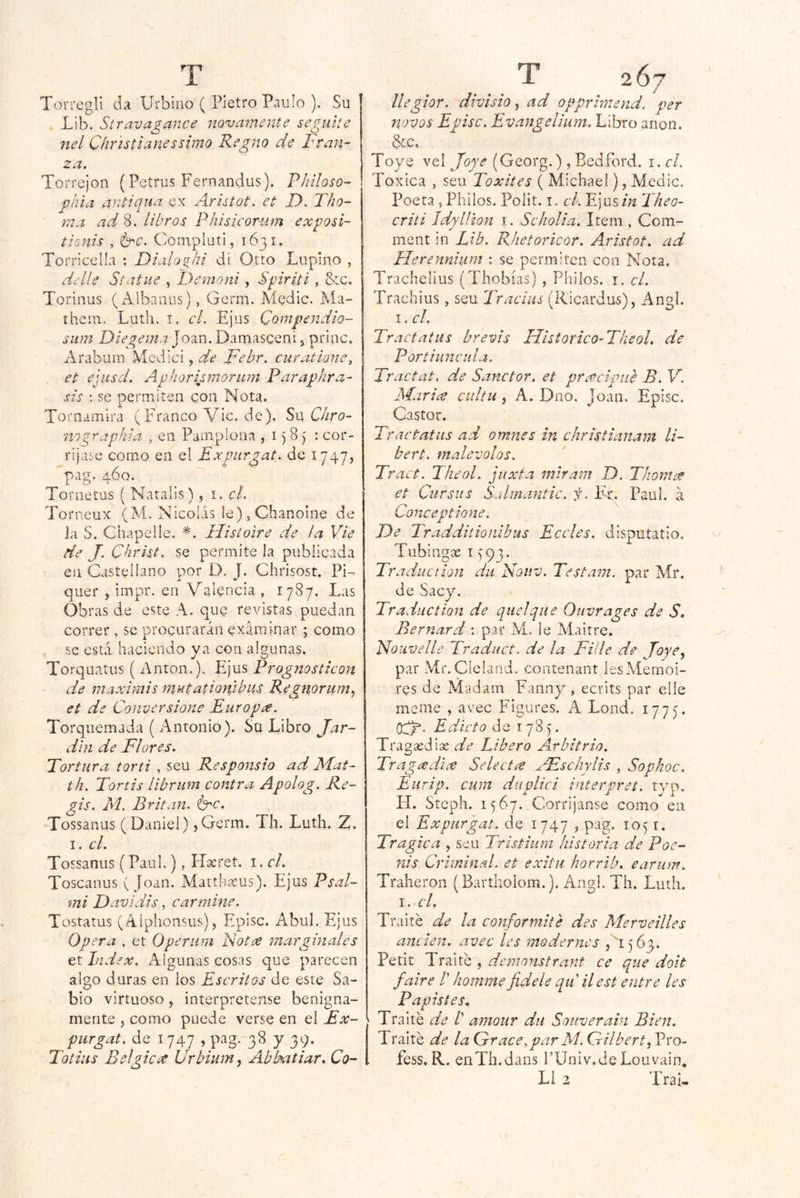 T
Torregli da Urbino ( Pietro Paulo ). Su
Lib. Stravagance novamente seguite
nel Christianessimo Regno de Fran-
za.
Torrejon (Petrus Fernandus). Philoso-
phia antiqua ex Aristot. et D. Tho-
ma ad 8. libros Phisicorum exposi-
tionis , &c. Compluti, 1631.
Torricella : Dialoghi di Otto Lupino ,
delle Statue , Demoni , Spiriti , &c.
Torinus (Albanus), Germ. Medic. Ma-
them. Luth. 1. cl. Ejus Compendio-
sum Diegema Joan. Damasceni, princ.
Arabum Medici, de Febr. curatione,
et ejusd. Aphorismorum Paraphra-
sis : se permiten con Nota.
Tornamira (Franco Vic. de). Su Chro-
nographia , en Pamplona , 1585 : cor-
rijase como en el Expurgat. de 1747,
pag. 460.
Tornetus ( Natalis) , 1. cl.
Torneux (M. Nicolás le), Chanoine de
la S. Chapelle. *. Histoire de la Vie
de J. Christ. se permite la publicada
en Castellano por D. J. Chrisost. Pi-
quer , impr. en Valencia , 1787. Las
Obras de este A. que revistas puedan
correr , se procurarán exâminar ; como
se está haciendo ya con algunas.
Torquatus ( Anton.). Ejus Prognosticon
de maximis mutationibus Regnorum,
et de Conversione Europæ.
Torquemada ( Antonio). Su Libro Jar-
din de Flores.
Tortura torti , seu Responsio ad Mat-
th. Tortis librum contra Apolog. Re-
gis. M. Britan. &c.
Tossanus (Daniel) , Germ. Th. Luth. Z.
1. cl.
Tossanus ( Paul. ) , Hæret. 1. cl.
Toscanus ( Joan. Matthæus). Ejus Psal-
mi Davidis, carmine.
Tostatus (Alphonsus), Episc. Abul. Ejus
Opera , et Operum Notæ marginales
et Index. Algunas cosas que parecen
algo duras en los Escritos de este Sa-
bio virtuoso , interpretense benigna-
mente , como puede verse en el Ex-
purgat. de 1747 , pag. 38 y 39.
Totius Belgicæ Urbium, Abbatiar. Co-
T 267
llegior. divisio , ad opprimend. per
novos Episc. Evangelium. Libro anon.
&c.
Toye vel Joye (Georg. ) , Bedford. 1. cl.
Toxica , seu Toxites ( Michael ), Medic.
Poeta , Philos. Polit. 1. cl. Ejus in Theo-
criti Idyllion 1. Scholia. Item , Com-
ment in Lib. Rhetoricor. Aristot. ad
Herennium : se permiten con Nota.
Trachelius (Thobías) , Philos. 1. cl.
Trachius , seu Tracius (Ricardus), Angl.
1. cl.
Tractatus brevis Historico-Theol. de
Portiuncula.
Tractat. de Sanctor. et præcipuè B. V.
Mariæ cultu , A. Dno. Joan. Episc.
Castor.
Tractatus ad omnes in christianam li-
bert. malevolos.
Tract. Theol. juxta miram D. Thomæ
et Cursus Salmantic. ỳ. Fr. Paul. à
Conceptione.
De Tradditionibus Eccles. disputatio.
Tubingæ 1593.
Traduction du Nouv. Testam. par Mr.
de Sacy.
Traduction de quelque Ouvrages de S.
Bernard : par M. le Maitre.
Nouvelle Traduct. de la Fille de Joye,
par Mr. Cleland. contenant les Memoi-
res de Madam Fanny , ecrits par elle
meme , avec Figures. A Lond. 1775.
☞. Edicto de 1785.
Tragædiæ de Libero Arbitrio.
Tragædiæ Selectæ Æschylis , Sophoc.
Eurip. cum duplici interpret. typ.
H. Steph. 1567. Corrijanse como en
el Expurgat. de 1747 , pag. 1051.
Tragica , seu Tristium historia de Poe-
nis Criminal. et exitu horrib. earum.
Traheron (Bartholom.). Angl. Th. Luth.
1. cl.
Traitè de la conformitè des Merveilles
ancien. avec les modernes , 1563.
Petit Traitè , demonstrant ce que doit
faire l' homme fidele qu' il est entre les
Papistes.
Traitè de l' amour du Souverain Bien.
Traitè de la Grace, par M. Gilbert, Pro-
fess. R. en Th. dans l'Univ. de Louvain.
Ll 2 Trai-